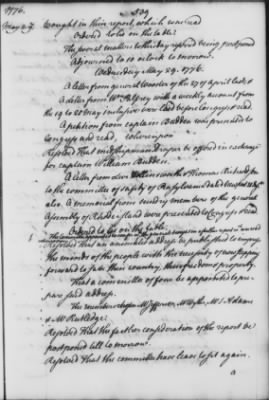 1776.
509
May 29. brought in their report, which was read
Ordered To lie on the table.
The several matters to this day referred being postponed
Adjourned to 10 o'clock to morrow.
Wednesday May 29. 1776.
A letter from general Wooster of the 27 of april last &
a letter from W. Palfrey with a weekly account from
the 19 to 20 May inclusive were laid before Congress & read
A petition from captain Budden was presented to
Congress and read, whereupon
Resolved That midshipman draper be offered in exchange
for captain William Budden.
A letter from Thomas Richard
to the committee of safety of Pensylvania
also, a Memorial from sundry members of the general
Assembly of Rhode island were presented to Congress & read
Ordered To lie on the table.
The committee
Resolved That an animated address be published to impress
the minds of the people with the necessity of now stepping
forward to save their country, their freedom & property.
That a committee of four be appointed to pre
pare said address.
The members chosen Mr Jefferson, Mr Wythe, Mr S Adams
& Mr Rutledge.
Resolved That the farther consideration of the report be
postponed till to morrow.
Resolved That the committee have leave to sit again.
a